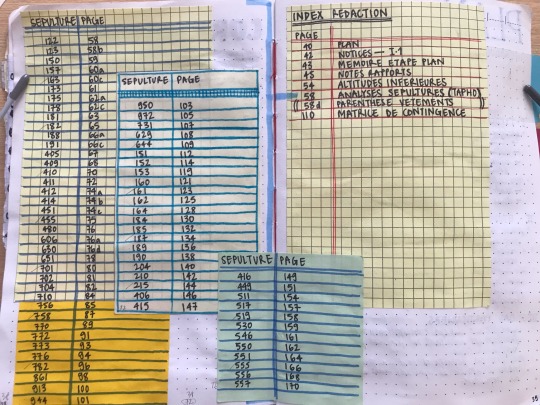 SEPULTURE PAGE
122 59
123 58b
150 59
157 60a
165 60c
173 61
175 62a
178 62c
181 63
182 65
188 66a
191 66c
405 67
409 68
410 70
411 72
412 74a
414 74b
451 74c
455 75
480 76
606 76a
650 76d
651 78
701 80
702 81
704 82
710 84
756 85
758 87
770 89
772 91
773 93
776 94
782 96
861 98
913 100
944 101
SEPULTURE PAGE
950 103
972 105
731 107
629 108
644 109
151 112
152 114
153 119
160 121
161 123
162 125
164 128
184 130
185 132
187 134
189 136
190 138
204 140
210 142
215 144
406 146
415 147
SEPULTURE PAGE
416 149
449 151
511 154
517 157
519 158
530 159
546 161
550 162
551 164
555 166
556 168
557 170
INDEX REDACTION
PAGE
40 PLAN
42 NOTICES — I-1
43 MEMOIRE ETAPE PLAN
45 NOTES RAPPORTS
54 ALTITUDES INFERIEURES
58 ANALYSES SEPULTURES (TAPHO)
((58d PARENTHESE VETEMENTS))
110 MATRICE DE CONTINGENCE